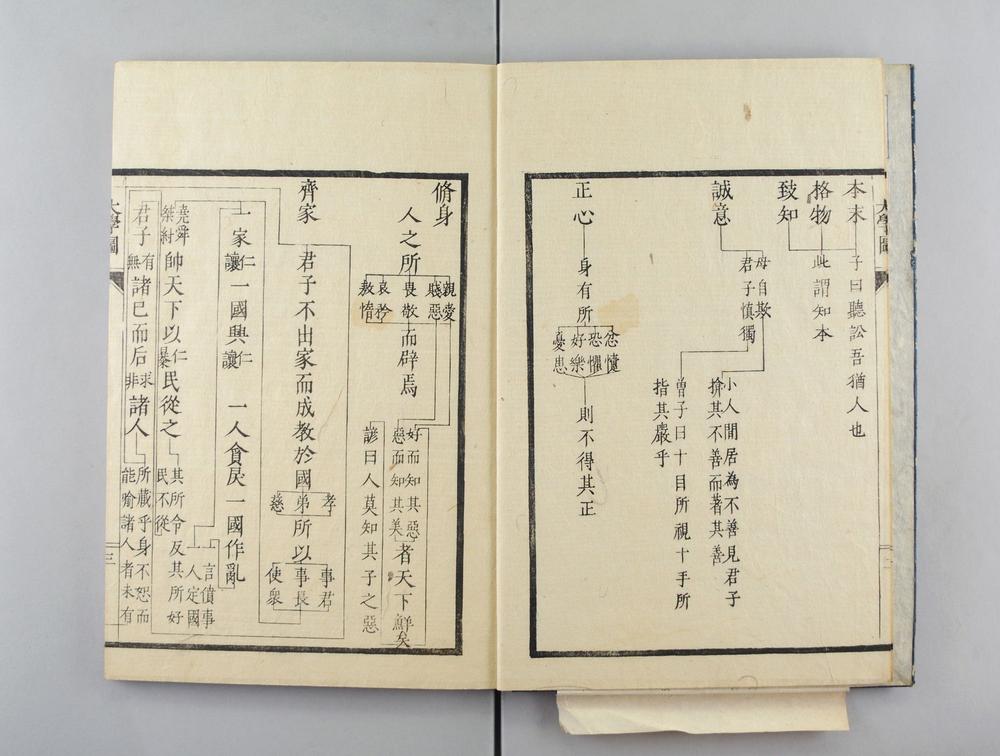 大學圖
本末
子曰聽訟吾猶人也
格物
此謂知本
致知
誠意
毋自欺
君子慎獨
小人閒居為不善見君子
揜其不善而著其善
曾子曰十目所視十手所
指其嚴乎
正心
身有所
忿懥
恐懼
好樂
憂患
則不得其正
脩身
人之所
親愛
賤惡
畏敬
哀矜
敖惰
而辟焉
好而知其惡
惡而知其美
者天下鮮矣
諺曰人莫知其子之惡
齊家
君子不出家而成教於國
孝
弟
慈
所以
事君
事長
使衆
一家
仁
讓
一國興
仁
讓
一人貪戾一國作亂
一言僨事
一人定國
堯舜
桀紂
帥天下以
仁
暴
民從之
其所令反其所好
民不從
君子
有
無
諸己而后
求
非
諸人
所藏乎身不恕而
能喻諸人者未有
大學圖
三